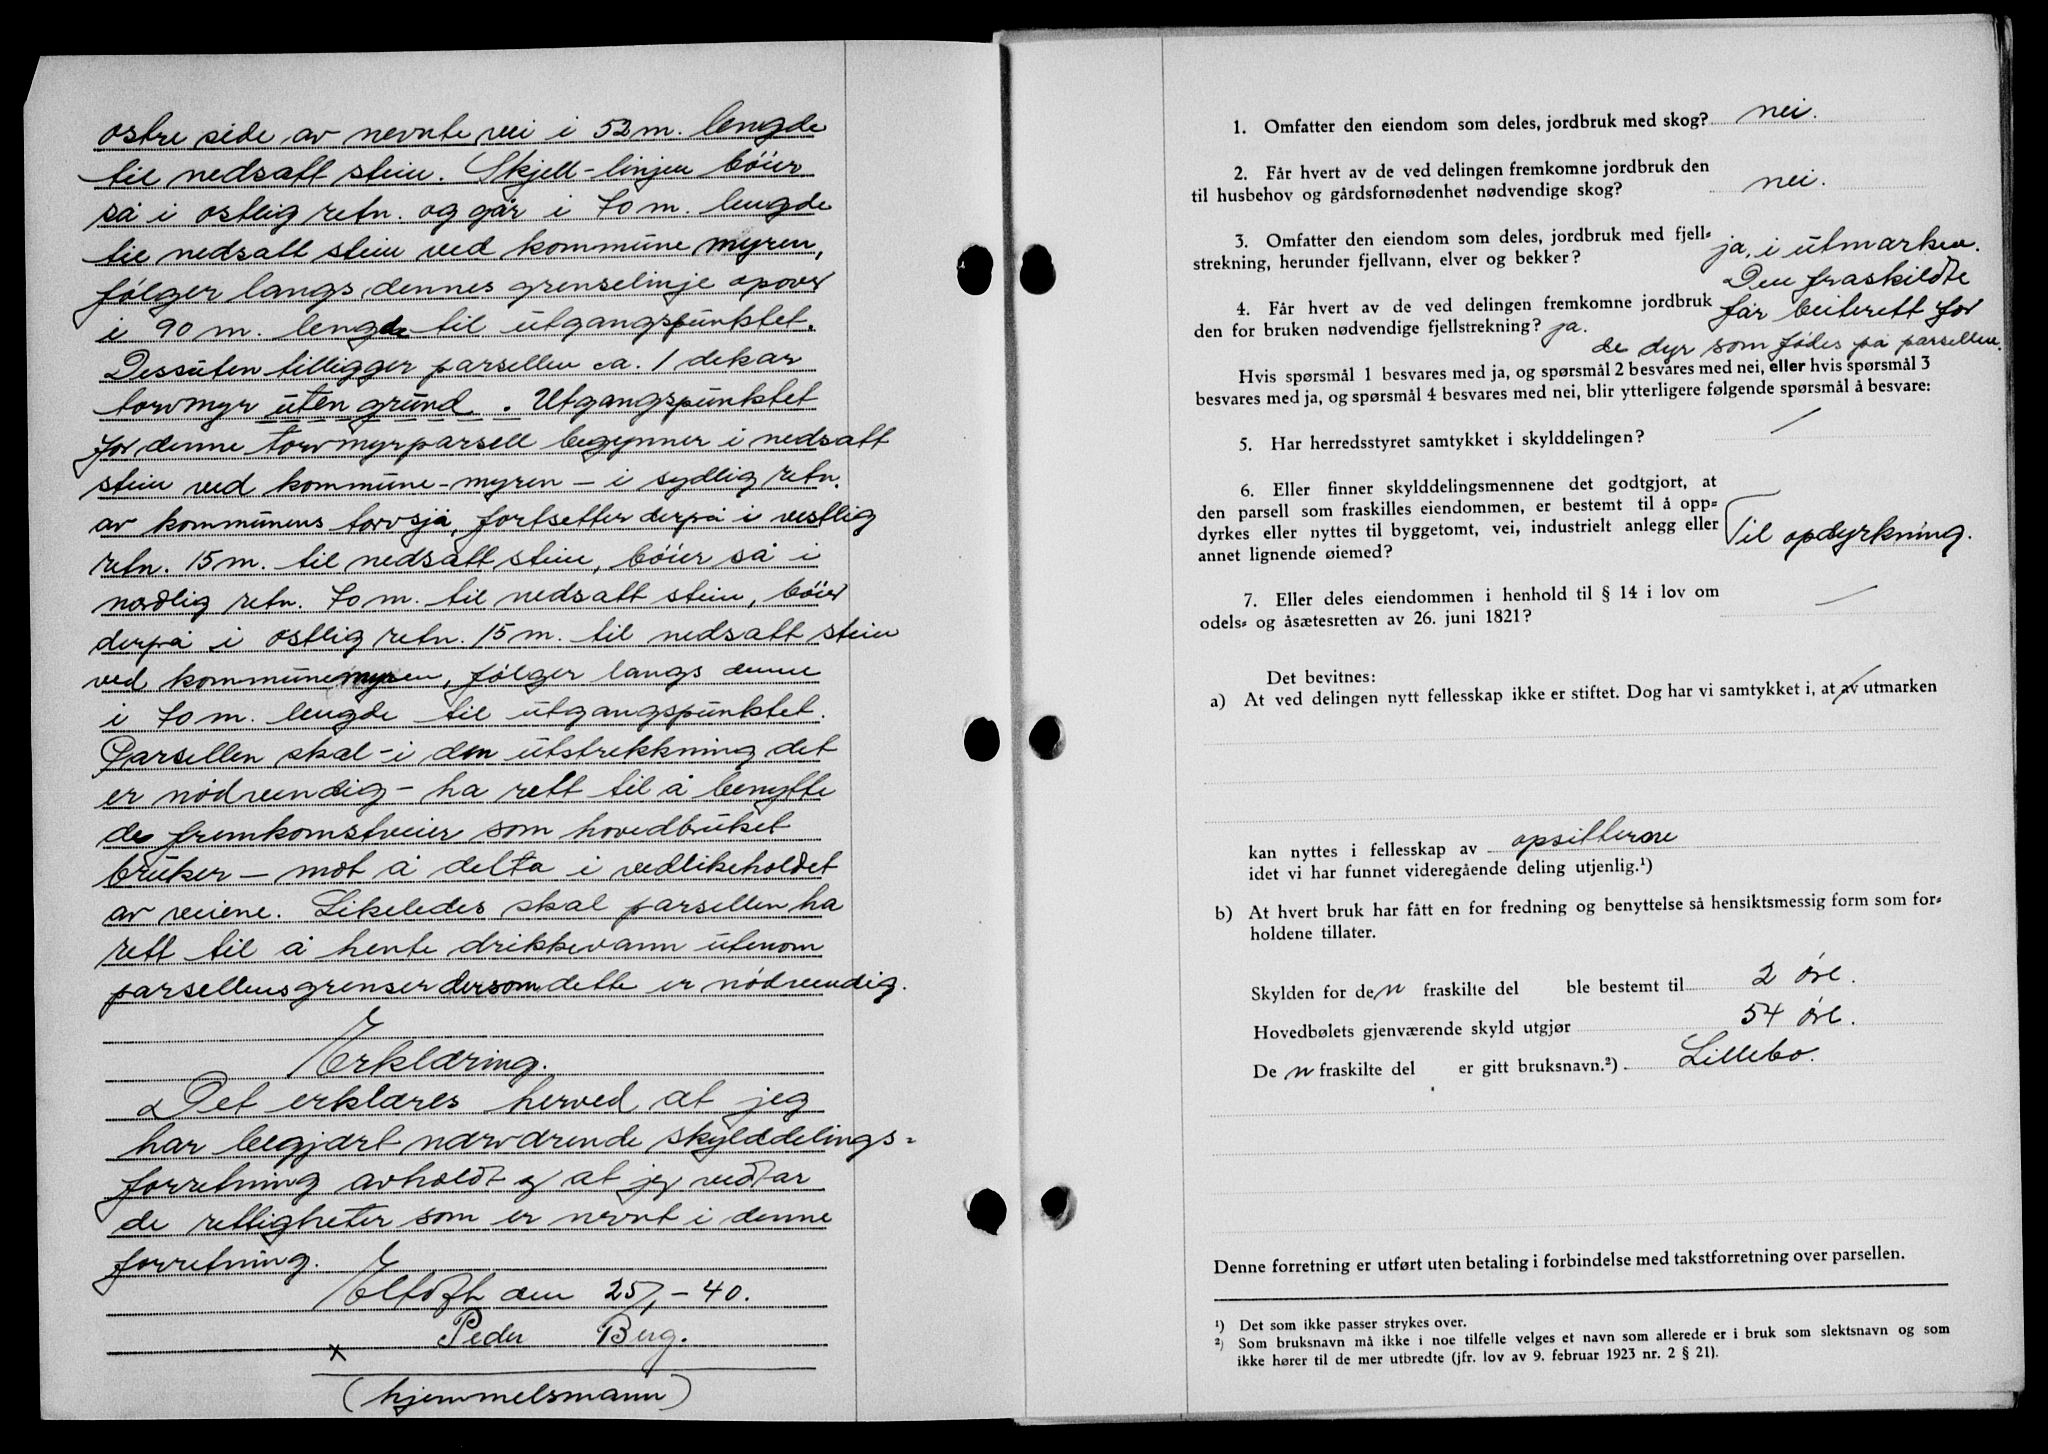 østre side av nevnte vei i 52 m. lengde
til nedsatt stein. Skjell-linjen bøier
så i østlig retn. og går i 70 m. lengde
til nedsatt stein ved kommune myren,
følger langs dennes grenselinje opover
i 90 m. lengde til utgangspunktet.
Dessuten tilligger parsellen ca. 1 dekar
torvmyr uten grund. Utgangspunktet
for denne torvmyrparsell begynner i nedsatt
stein ved kommune-myren - i sydlig retn.
av kommunens torvsjå, fortsetter derpå i vestlig
retn. 15 m. til nedsatt stein, bøier så i
nordlig retn. 70 m. til nedsatt stein, bøier
derpå i østlig retn. 15 m. til nedsatt stein
ved kommunemyren, følger langs denne
i 70 m. lengde til utgangspunktet.
Parsellen skal - i den utstrekkning det
er nødvendig - ha rett til å benytte
de fremkomstveier som hovedbruket
bruker - mot å delta i vedlikeholdet
av veiene. Likeledes skal parsellen ha
rett til å hente drikkevann utenom
parsellensgrenser dersom dette er nødvendig.
Erklæring.
Det erklæres herved at jeg
har begjært nærværende skylddelings=
forretning avholdt og at jeg vedtar
de rettigheter som er nevnt i denne
forretning.
Eltoft den 25/1-40.
Peder Berg.
x
(hjemmelsmann)
1. Omfatter den eiendom som deles, jordbruk med skog? nei.
2. Får hvert av de ved delingen fremkomne jordbruk den
til husbehov og gårdsfornødenhet nødvendige skog? nei.
3. Omfatter den eiendom som deles, jordbruk med fjell=
strekning, herunder fjellvann, elver og bekker? ja, i utmarken.
Den fraskildte
4. Får hvert av de ved delingen fremkomne jordbruk får beiterett for
den for bruken nødvendige fjellstrekning? ja.
de dyr som fødes på parsellen.
Hvis spørsmål 1 besvares med ja, og spørsmål 2 besvares med nei, eller hvis spørsmål 3
besvares med ja, og spørsmål 4 besvares med nei, blir ytterligere følgende spørsmål å besvare:
5. Har herredsstyret samtykket i skylddelingen? /
6. Eller finner skylddelingsmennene det godtgjort, at
den parsell som fraskilles eiendommen, er bestemt til å opp=
dyrkes eller nyttes til byggetomt, vei, industrielt anlegg eller Til opdyrkning.
annet lignende øiemed?
7. Eller deles eiendommen i henhold til § 14 i lov om
odels= og åsætesretten av 26. juni 1821? /
Det bevitnes:
a) At ved delingen nytt fellesskap ikke er stiftet. Dog har vi samtykket i, at av utmarken
kan nyttes i fellesskap av opsitterne
idet vi har funnet videregående deling utjenlig.¹)
b) At hvert bruk har fått en for fredning og benyttelse så hensiktsmessig form som for=
holdene tillater.
Skylden for den fraskilte del ble bestemt til 2 øre.
Hovedbølets gjenværende skyld utgjør 54 øre.
Den fraskilte del er gitt bruksnavn.²) Lillebo.
Denne forretning er utført uten betaling i forbindelse med takstforretning over parsellen.
¹) Det som ikke passer strykes over.
²) Som bruksnavn må ikke i noe tilfelle velges et navn som allerede er i bruk som slektsnavn og som
ikke hører til de mer utbredte (jfr. lov av 9. februar 1923 nr. 2 § 21).